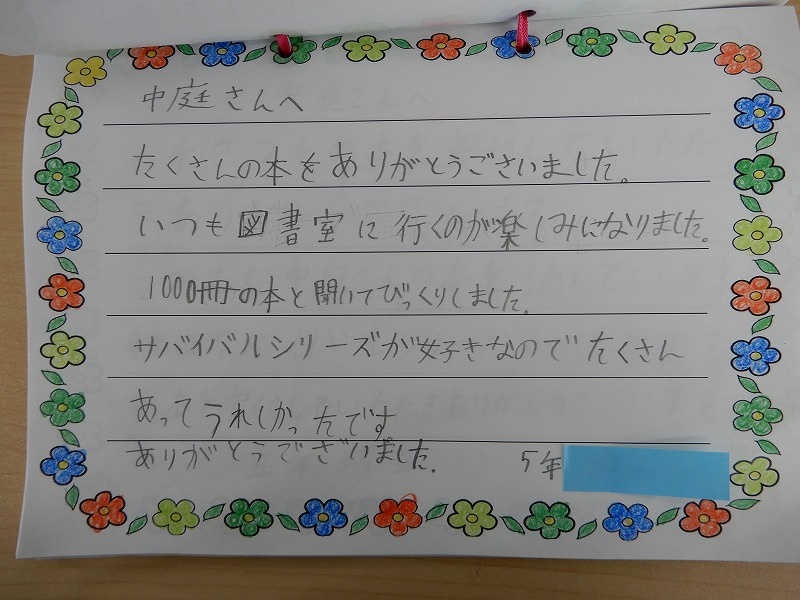 中庭さんへ
たくさんの本をありがとうございました。
いつも図書室に行くのが楽しみになりました。
1000冊の本と聞いてびっくりしました。
サバイバルシリーズが好きなのでたくさん
あってうれしかったです
ありがとうでざいました。 5年